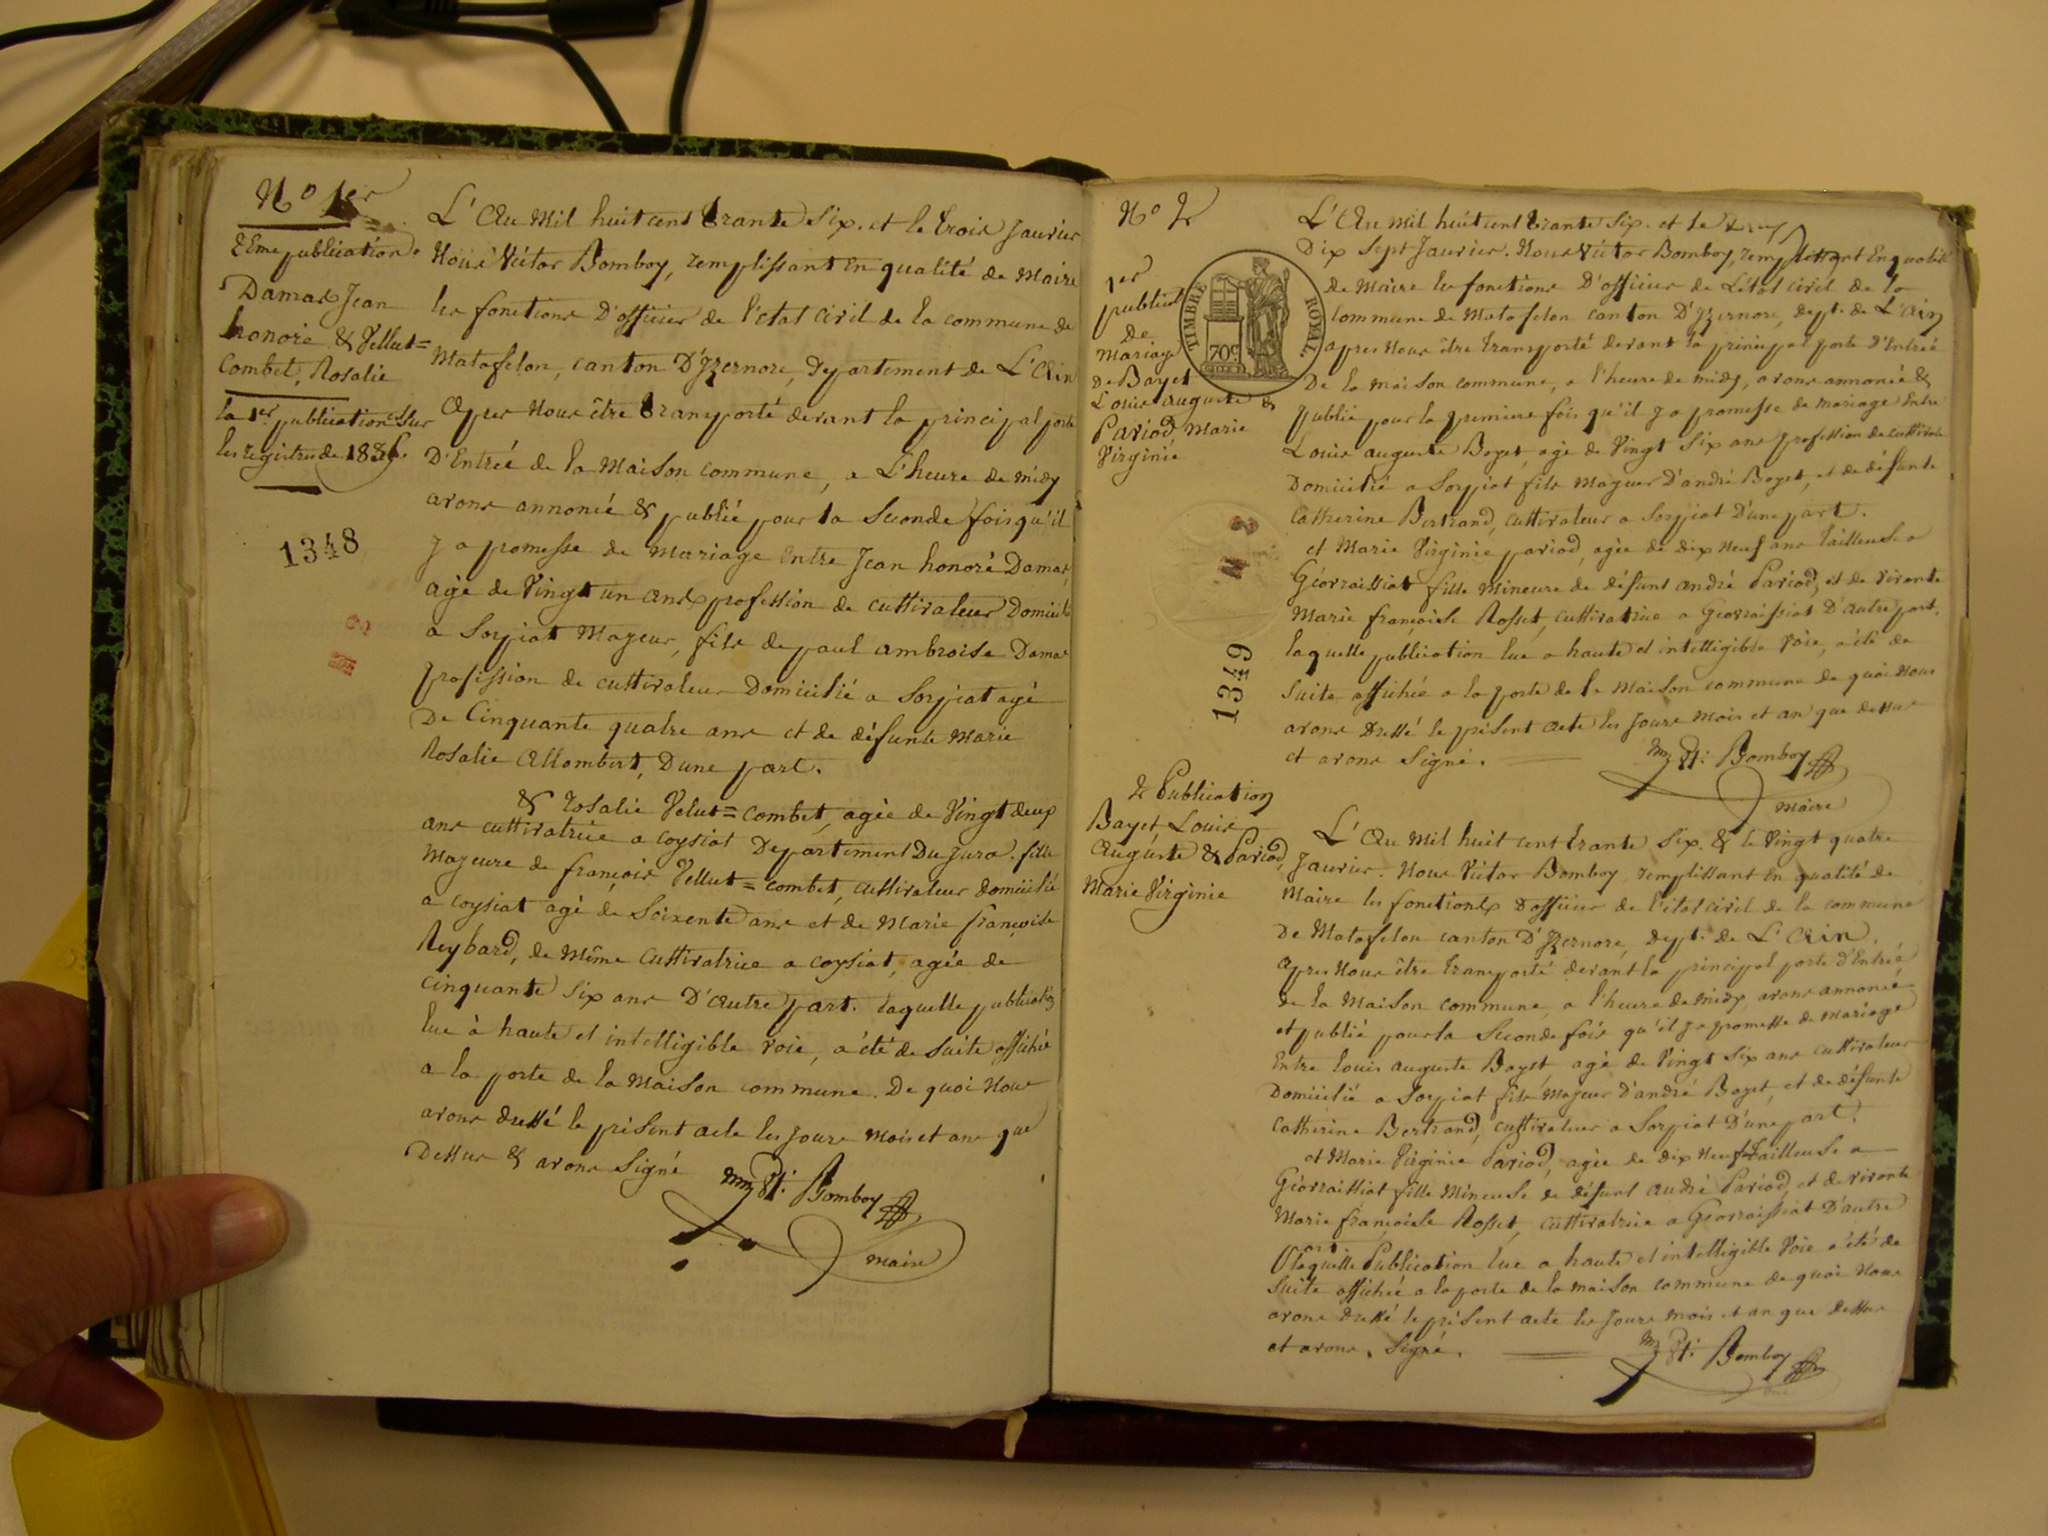 No 1er
2Eme publication
Damas Jean
honoré & Vellut=
Combet, Rosalie
la 1er publication Sur
les registres de 1835.
1348
L'An Mil huit cent trante Six. et le trois Janvier
Nous Victor Bomboy, remplissant En qualité de Maire
les fonctions D'officier de l'état civil de la commune de
Matafelon, canton D'Yzernore, Département de L'Ain
Apres Nous être transporté devant la principal porte
D'Entréé de la Maison commune, a L'heure de midy
avons annoncé & publié pour la Seconde fois qu'il
y a promesse de mariage Entre Jean honoré Damas,
agé de Vingt un ans profession de cultivateur Domicilié
a Sorpiat Majeur, fils de paul ambroise Damas
profission de cultivateur Domicilié a Sorpiat agé
De Cinquante quatre ans et de défunte Marie
Rosalie Allombert, Dune part.
& Rosalie Velut=Combet, agée de Vingt deux
ans cultivatrice a coysiat Département Du Jura. fille
Majeure de françois Vellut=combet, cultivateur domicilié
a coysiat agé de Soixente ans et de Marie françoise
Reybard, de Même Cultivatrice a coysiat, agée de
cinquante six ans D'autre part. laquelle publication
lue à haute et intelligible voie, a été de Suite affiché
a la porte de la Maison commune. De quoi Nous
avons dressé le présent acte les jours Mois et ans que
Dessus & avons Signé
Bomboy
maire
No 2
1er
publicat
de
Mariage
De Bayet
Louis auguste &
Pariod, Marie
Virginie
TIMBRE ROYAL
70c
1349
L'An Mil huit cent trante Six. et le
Dix Sept Janvier. Nous Victor Bomboy, remplissant En qualité
de Maire les fonctions D'officier de L'état civil de la
Commune de Matafelon canton D'Yzernore, dept. de L'Ain
apres Nous être transporté devant la principal porte D'Entréé
De la maison commune, a l'heure de midy, avons annoncé &
publié pour la premiere fois qu'il y a promesse de Mariage Entre
Louis auguste Bayet, agé de Vingt Six ans profession de cultivateur
Domicilié a Sorpiat fils Majeur D'andré Bayet, et de défunte
Catherine Bertrand, cultivateur a Sorpiat D'une part.
et Marie Virginie pariod, agée de dix Neuf ans tailleuse a
Géovraissiat fille Mineure de défunt andré Pariod, et de vivante
Marie françoise Rosset, cultivatrice a Geovraissiat D'autre part.
laquelle publication lue a haute et intelligible voie, a été de
Suite affichée a la porte de la Maison commune de quoi Nous
avons Dressé le présent acte les jours Mois et an que dessus
et avons Signé.
Bomboy
maire
2e Publication
Bayet, Louis
Auguste & Pariod,
Marie Virginie
L'An Mil huit cent trante Six. & le Vingt quatre
Janvier. Nous Victor Bomboy remplissant En qualité de
Maire les fonctions D'officier de l'état civil de la commune
De Matafelon canton D'Yzernore, dept. de L'Ain.
Apres Nous être transporté devant la principal porte d'Entréé
de la Maison commune, a l'heure de midy, avons annoncé
et publié pour la Seconde fois qu'il y a promesse de Mariage
Entre louis auguste Bayet agé de Vingt Six ans cultivateur
Domicilié a Sorpiat fils Majeur D'andré Bayet, et de défunte
Catherine Bertrand, cultivateur a Sorpiat D'une part.
et Marie Virginie Pariod, agée de dix Neuf tailleuse a
Géovraissiat fille Mineuse de défunt André Pariod, et de vivante
Marie françoise Rosset, cultivatrice a Geovraissiat D'autre
part. laquelle Publication lue a haute et intelligible Voie a été de
Suite affichée a la porte de la maison commune de quoi Nous
avons dressé le présent acte les jours mois et an que dessus
et avons Signé.
Bomboy